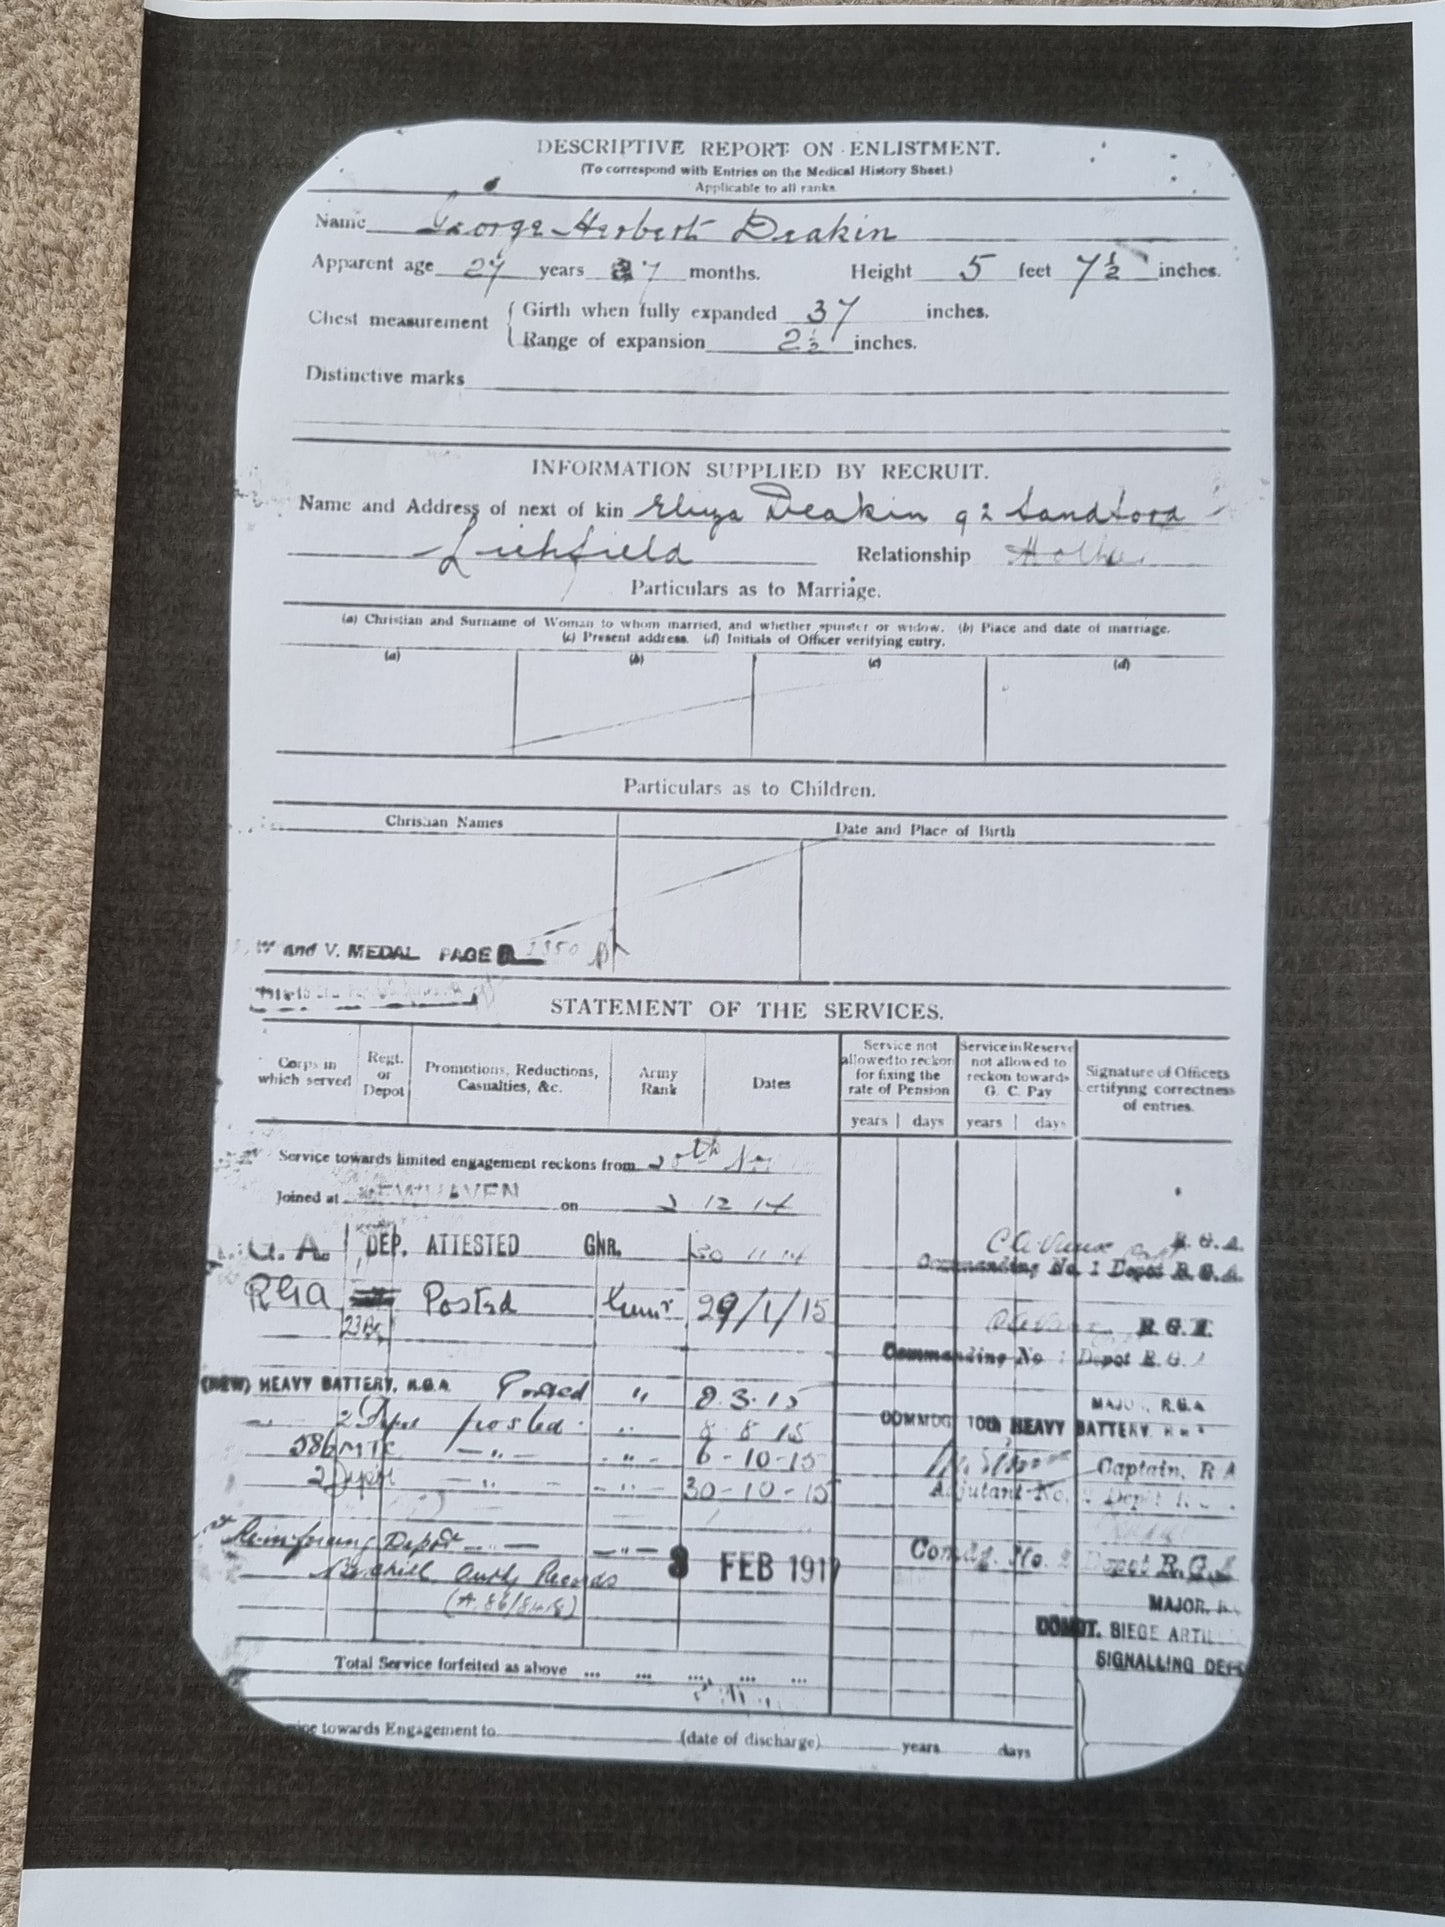 DESCRIPTIVE REPORT ON ENLISTMENT.
(To correspond with Entries on the Medical History Sheet.)
Applicable to all ranks.
Name George Herbert Deakin
Apparent age 27 years 7 months. Height 5 feet 7½ inches.
Chest measurement
Girth when fully expanded 37 inches.
Range of expansion 2½ inches.
Distinctive marks
INFORMATION SUPPLIED BY RECRUIT.
Name and Address of next of kin Eliza Deakin 92 Sandford
Lichfield Relationship Mother
Particulars as to Marriage.
(a) Christian and Surname of Woman to whom married, and whether spinster or widow. (b) Place and date of marriage.
(c) Present address. (d) Initials of Officer verifying entry.
(a) (b) (c) (d)
Particulars as to Children.
Christian Names Date and Place of Birth
W and V. MEDAL PAGE
STATEMENT OF THE SERVICES.
Corps in which served
Regt. or Depot
Promotions, Reductions, Casualties, &c.
Army Rank
Dates
Service not allowed to reckon for fixing the rate of Pension
Service in Reserve not allowed to reckon towards G. C. Pay
Signature of Officers certifying correctness of entries.
years days years days
Service towards limited engagement reckons from 20th Nov
Joined at NEWHAVEN on 2 12 14
G. A. DEP. ATTESTED GNR. 11 14 R. G. A.
Commanding No. 1 Depot R. G. A.
RGA Posted Gunr 29/1/15 R. G. A.
23
Commanding No 1 Depot R. G. A
(NEW) HEAVY BATTERY, R.G.A. Posted " 8.3.15 MAJOR, R.G.A
2 Depot posted " 8 8 15 COMMDG 10th HEAVY BATTERY.
586 MTC — " — — " — 6-10-15 Captain, R A
2 Depot — " — — " — 30-10-15 Adjutant No. 2 Depot
Reinforcing Depot — " — — " — 8 FEB 1917 Comdg. No. 2 Depot R.G.A
Bexhill Auth Records
MAJOR,
COMDT. SIEGE ARTIL
SIGNALLING DEP
Total Service forfeited as above ... ... ... ... ...
towards Engagement to (date of discharge) years days